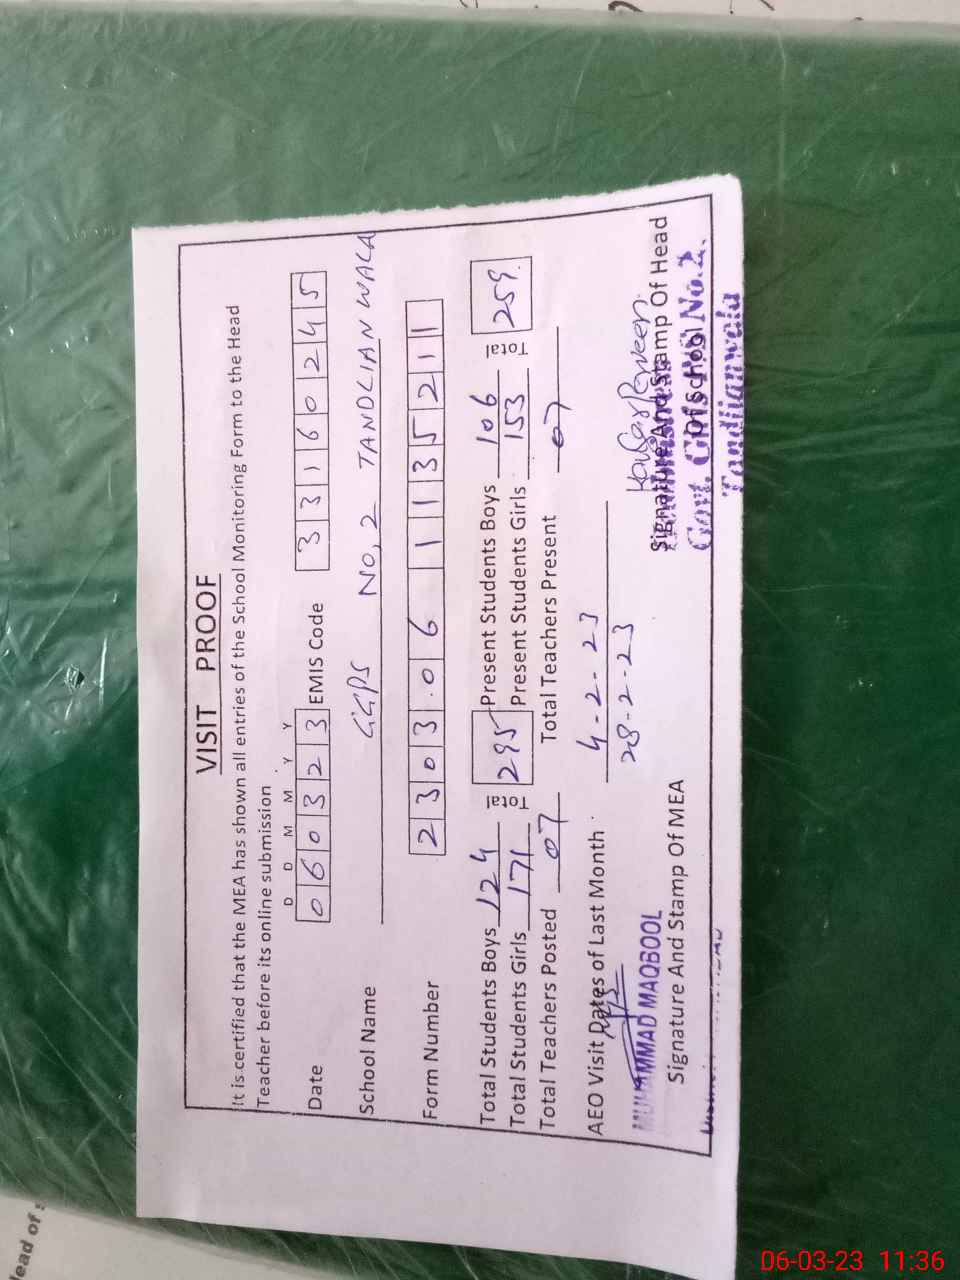 VISIT PROOF
It is certified that the MEA has shown all entries of the School Monitoring Form to the Head
Teacher before its online submission
D D M M Y Y
Date 060323 EMIS Code 33160245
School Name GGPS NO, 2 TANDLIAN WALA
Form Number 2303.06 1135211
Total Students Boys 124 Total 295 Present Students Boys 106 Total 259.
Total Students Girls 171 Present Students Girls 153
Total Teachers Posted 07 Total Teachers Present 07
AEO Visit Dates of Last Month 4-2-23
28-2-23
MUHAMMAD MAQBOOL
Signature And Stamp Of MEA
Kausar Parveen
Signature And Stamp Of Head
Of School
Govt. Girls P/S No.2.
Tandlianwala
lead of
06-03-23 11:36